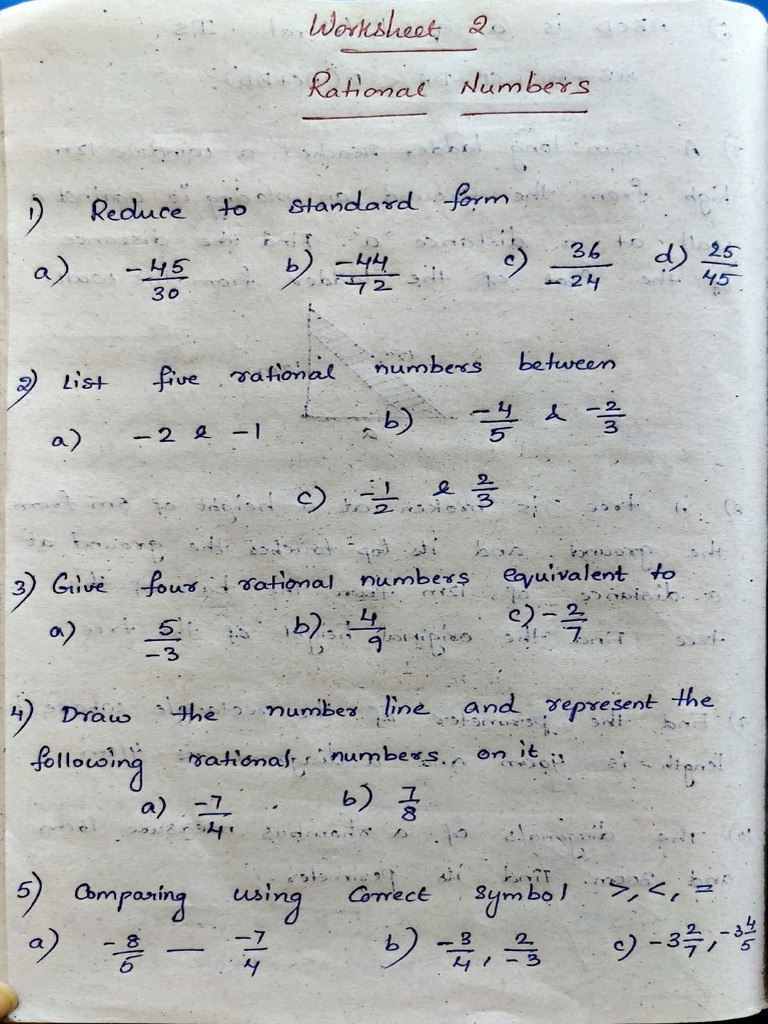 Worksheet 2
Rational Numbers
1) Reduce to standard form
a) -45/30 b) -44/72 c) 36/-24 d) 25/45
2) List five rational numbers between
a) -2 & -1 b) -4/5 & -2/3
c) -1/2 & 2/3
3) Give four rational numbers equivalent to
a) 5/-3 b) 4/9 c) -2/7
4) Draw the number line and represent the
following rational numbers on it
a) -7/4 b) 7/8
5) Comparing using Correct Symbol >, <, =
a) -8/5 — -7/4 b) -3/4, 2/-3 c) -3 2/7, -3 4/5